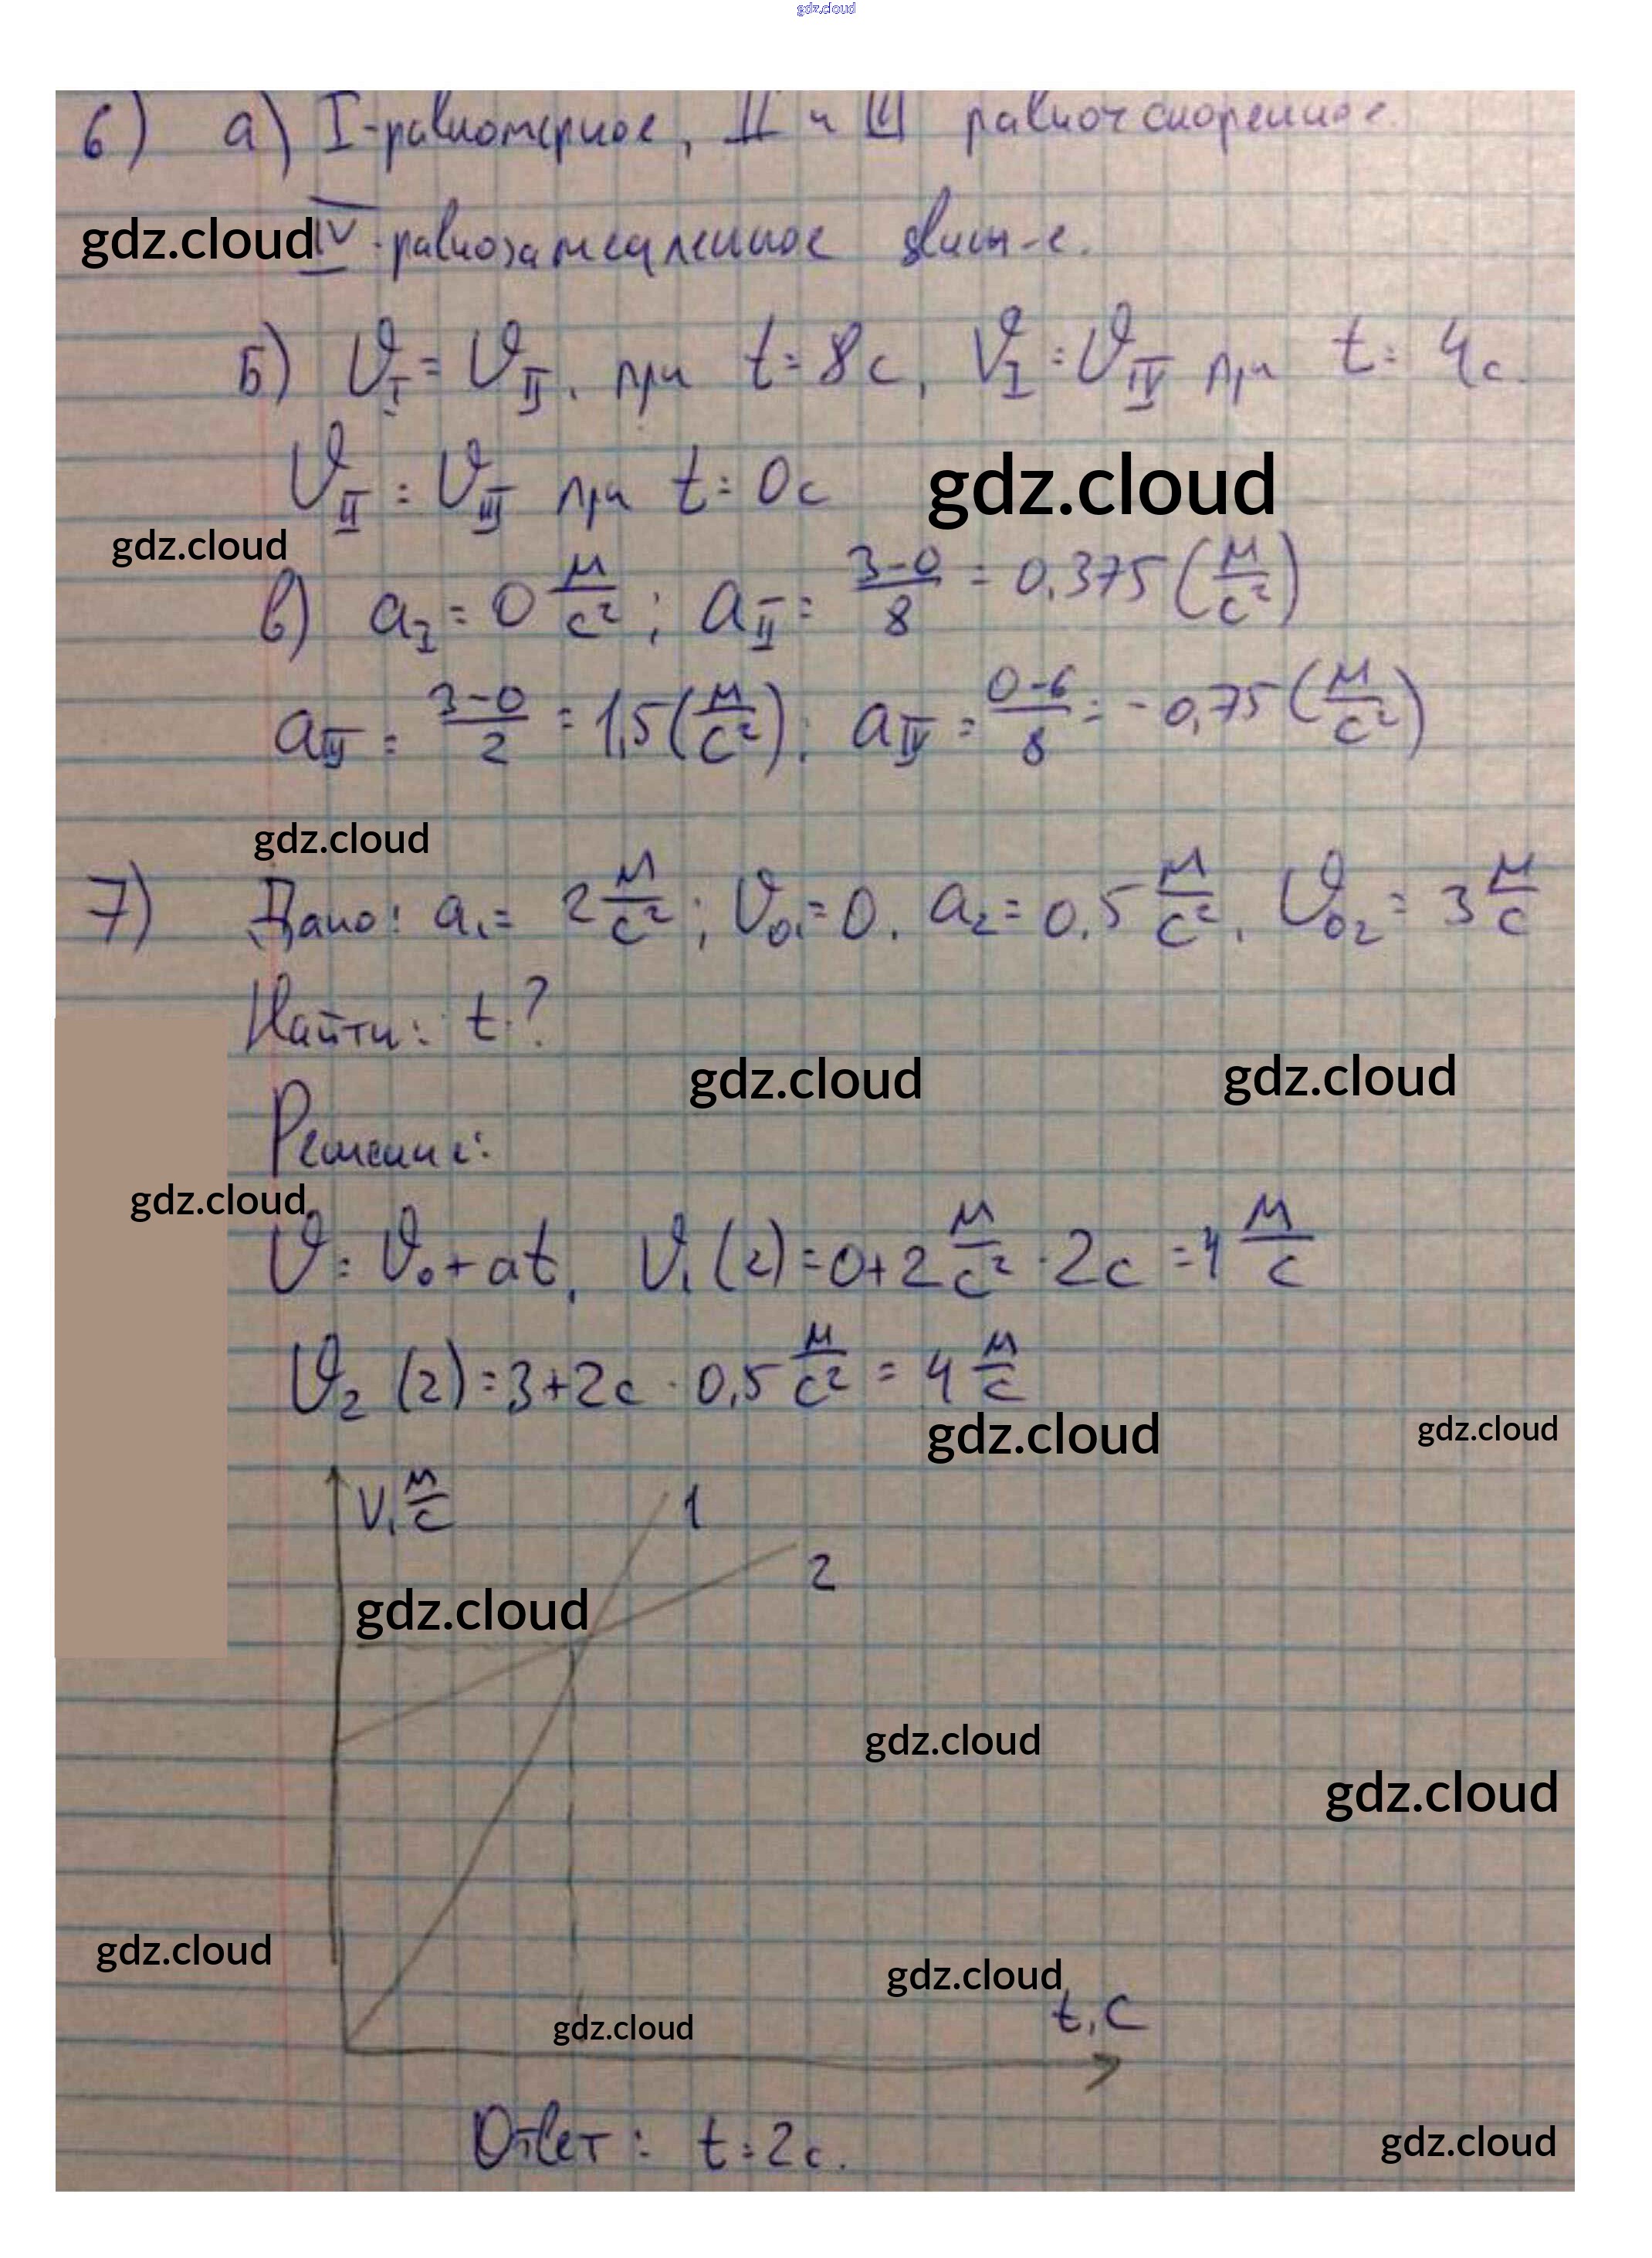 gdz.cloud
6) а) I-равномерное, II и III равноускоренное.
gdz.cloud
IV-равнозамедленное движ-е.
Б) υ_I = υ_II, при t = 8с, υ_I = υ_IV при t = 4с.
υ_II = υ_III при t = 0с
gdz.cloud
gdz.cloud
в) a_I = 0 м/с²; a_II = (3-0)/8 = 0,375 (м/с²)
a_III = (3-0)/2 = 1,5 (м/с²); a_IV = (0-6)/8 = -0,75 (м/с²)
gdz.cloud
7) Дано: a₁ = 2 м/с²; υ₀₁ = 0. a₂ = 0,5 м/с², υ₀₂ = 3 м/с
Найти: t-?
gdz.cloud gdz.cloud
Решение:
gdz.cloud
υ = υ₀ + at, υ₁(2) = 0 + 2 м/с² · 2с = 4 м/с
υ₂(2) = 3 + 2с · 0,5 м/с² = 4 м/с
gdz.cloud gdz.cloud
V, м/с 1
2
gdz.cloud
gdz.cloud
gdz.cloud
gdz.cloud gdz.cloud
t, С
gdz.cloud
Ответ: t = 2с.
gdz.cloud